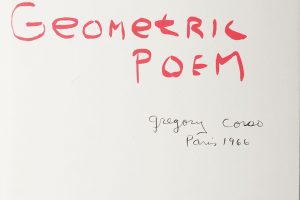 GeomeTRIC
POEM
gregory Corso
Paris 1966